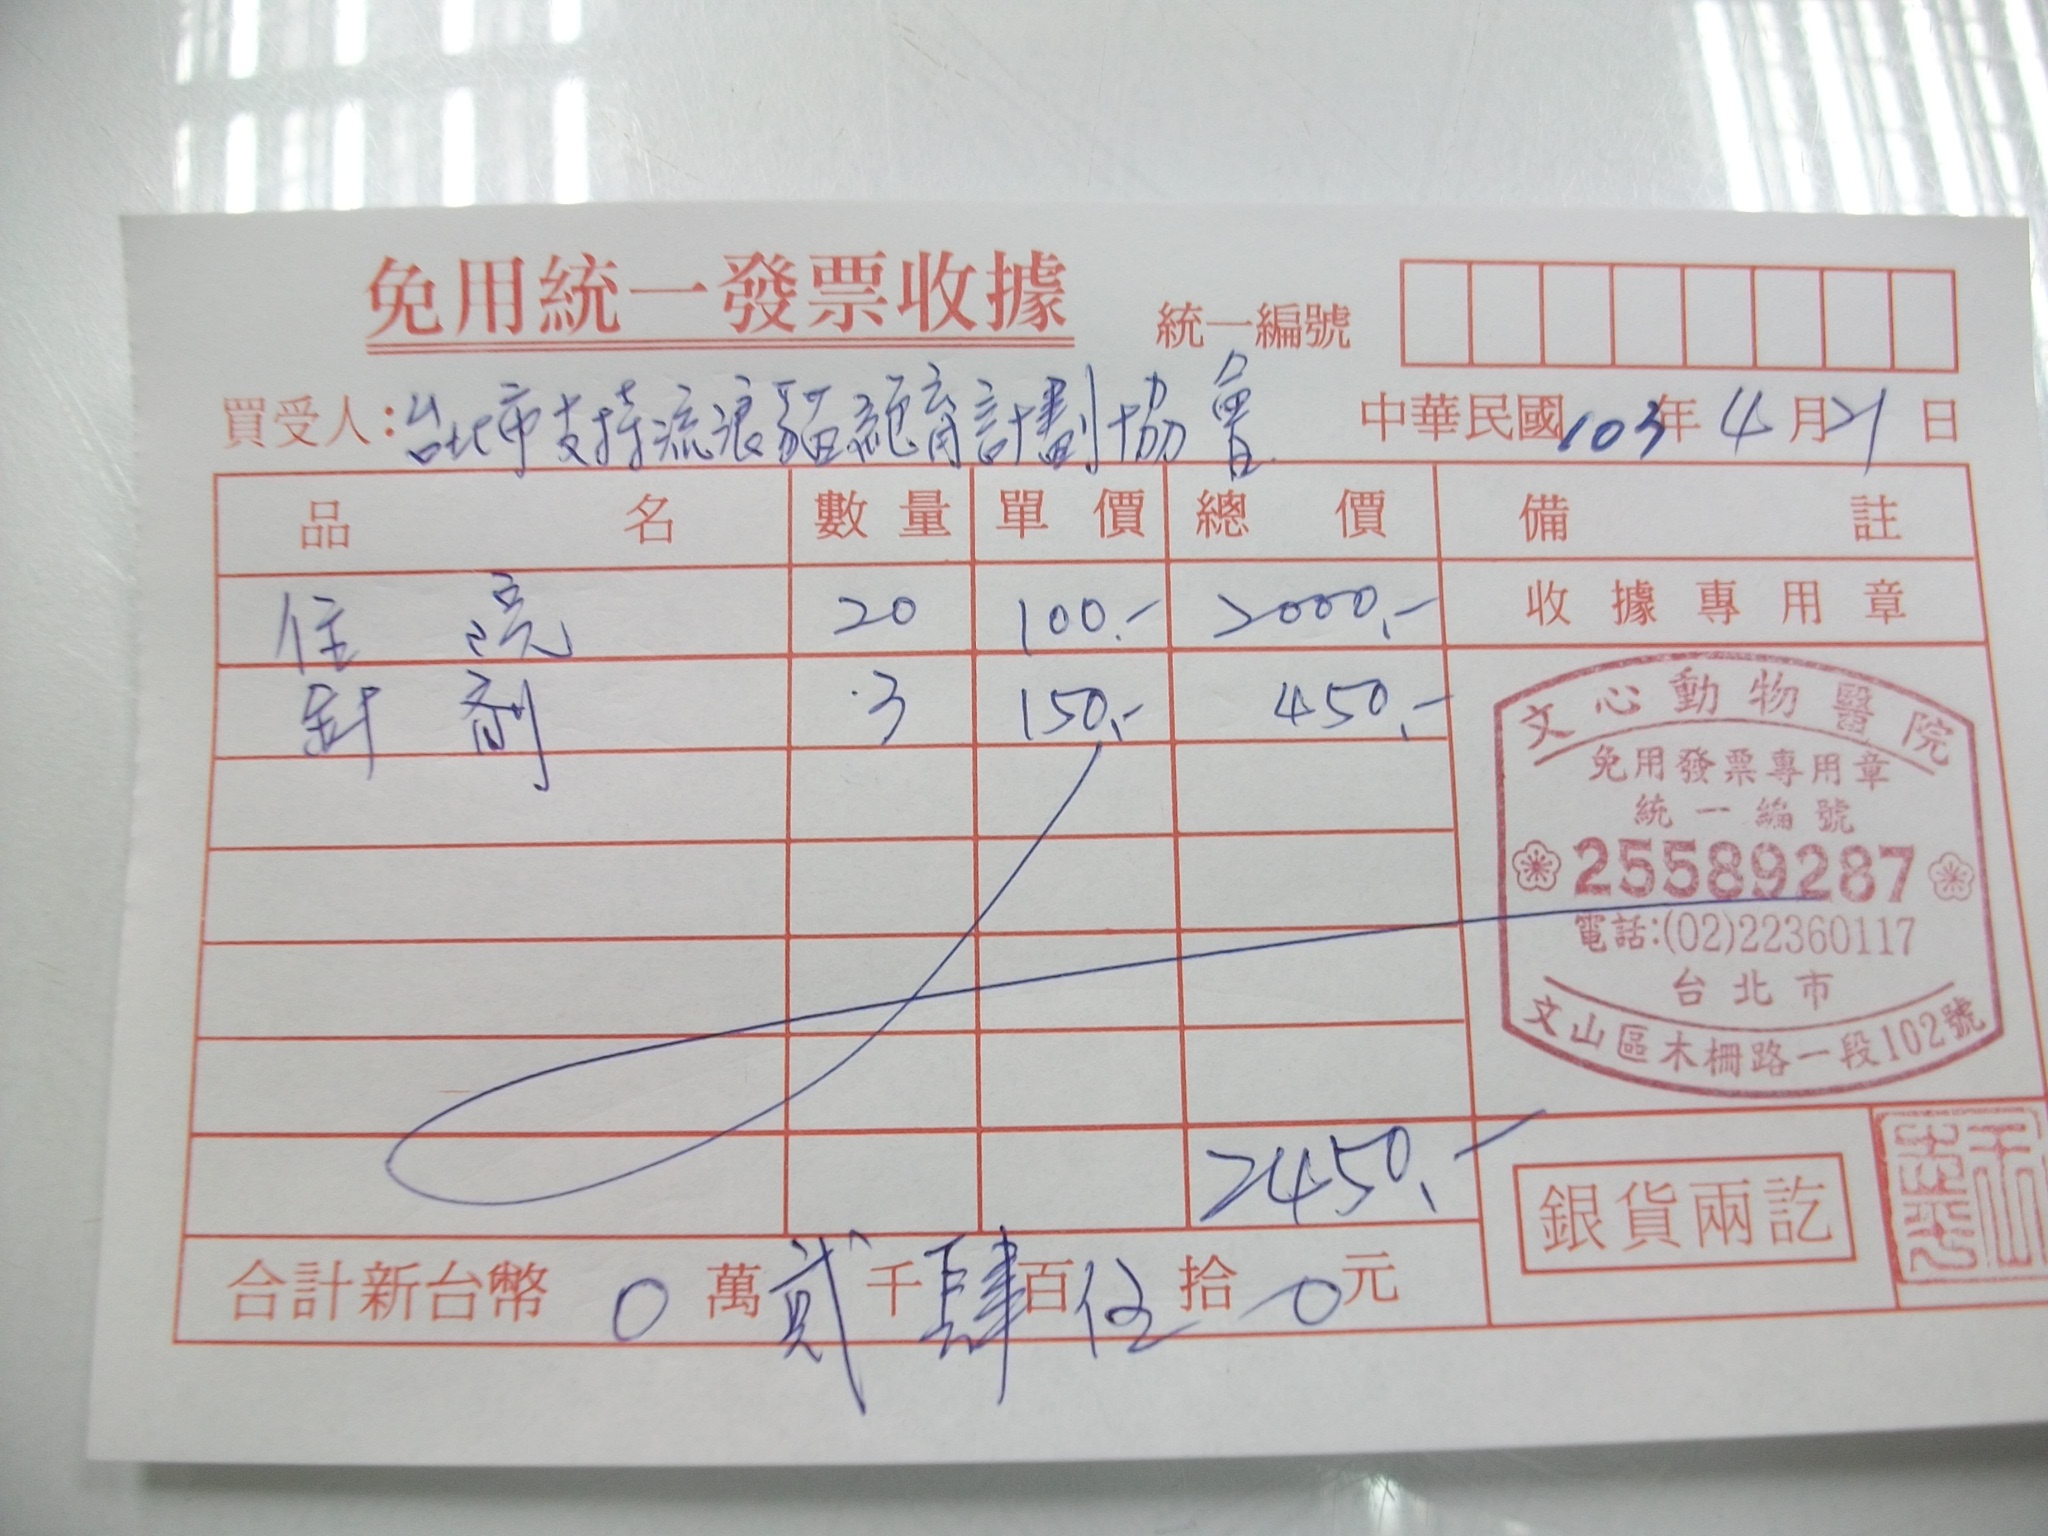 免用統一發票收據
統一編號
買受人：台北市支持流浪貓絕育計劃協會
中華民國103年4月21日
品名 數量 單價 總價 備註
住院 20 100.- 2000.- 收據專用章
針劑 3 150.- 450.-
文心動物醫院
免用發票專用章
統一編號
25589287
電話:(02)22360117
台北市
文山區木柵路一段102號
2450.-
銀貨兩訖
合計新台幣 0萬貳千肆百伍拾0元